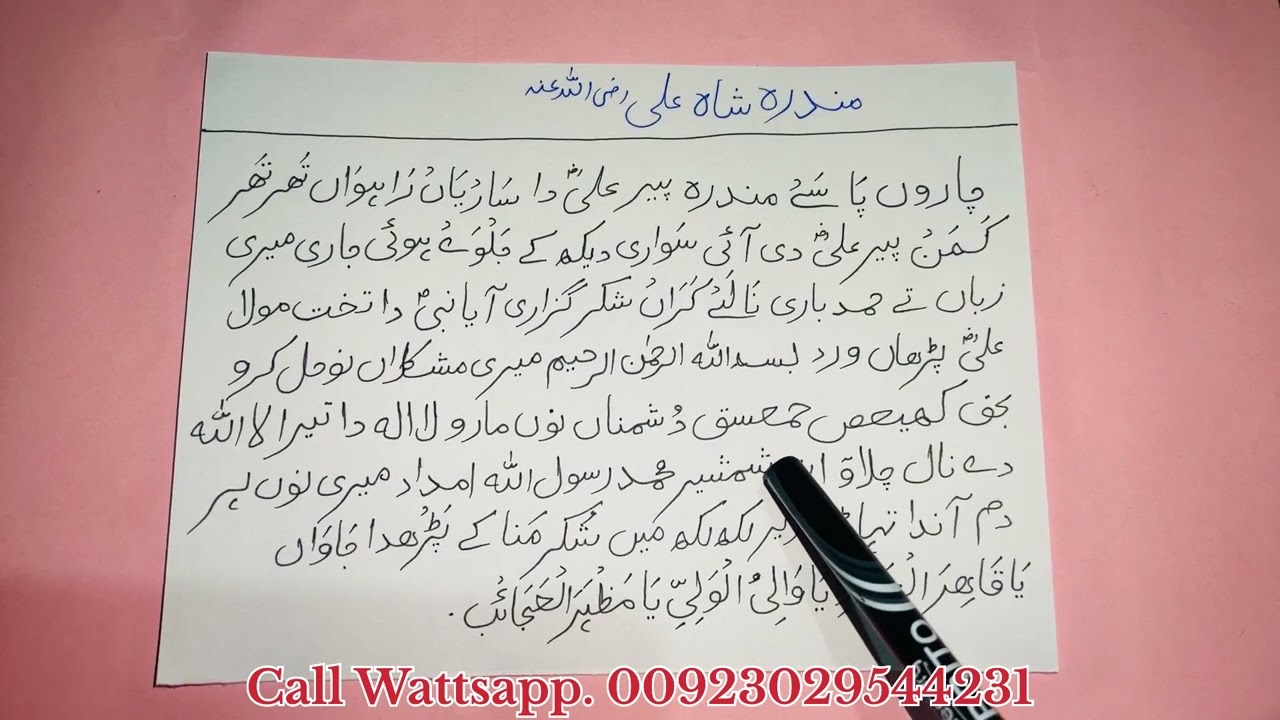 مندرہ شاہ علی رضی اللہ عنہ
چاروں پَا سَےُ مندرہ پیر علیؓ دا سَارِیَاںُ رَاہوَاں تُھر تُھر
کَمَنُ پیر علیؓ دی آئی سَواری دیکھ کے جَلْوَےُ ہوئی جاری میری
زباں تے حمد باری نَالَےُ کَرَاںُ شکر گزاری آیا نبیؐ دا تخت مولا
علیؓ پڑھاں ورد بسم اللہ الرحمٰن الرحیم میری مشکلاں نو حل کرو
بحق کھیعص حمعسق دُشمناں نوں مارو لا الہ دا تیرا لا اللہ
دے نال چلاؤ شمشیر محمد رسول اللہ امداد میری نوں ہر
دم آندا لکھ لکھ میں شُکر مَنا کے پَڑھدا جَاوَاں
یَا قَاہِرَ یَا وَالِیُ الْوَلِیِّ یَا مَظْہَرَ الْعَجَائِب.
Call Wattsapp. 00923029544231